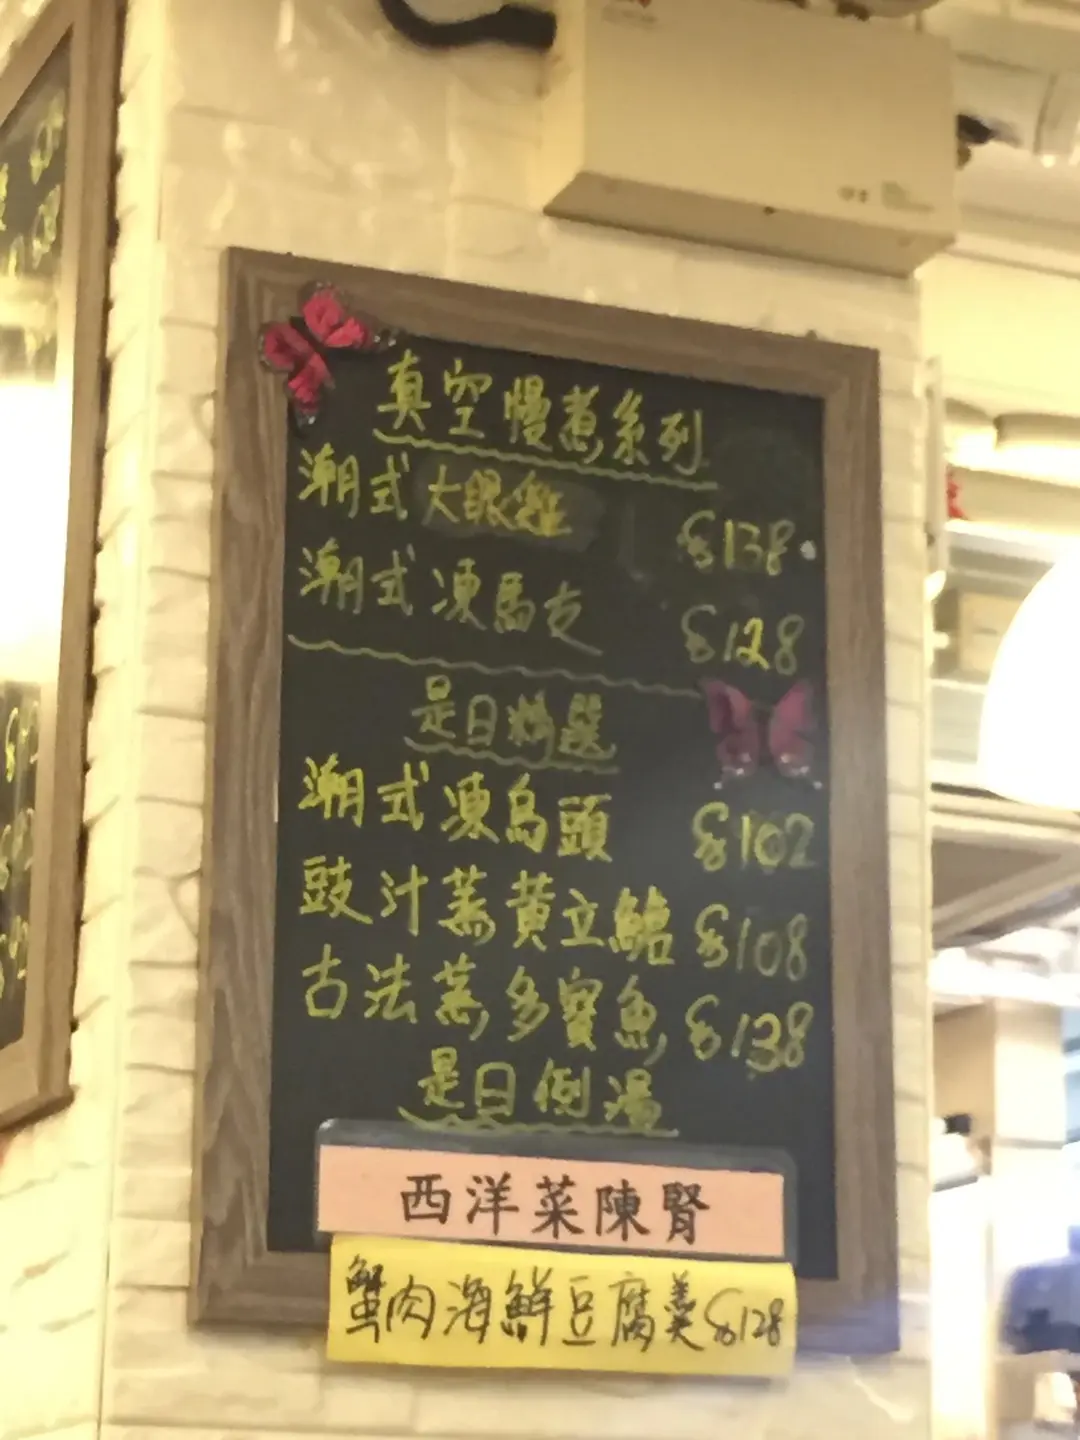 真空慢煮系列
潮式大眼雞 $138
潮式凍馬友 $128
是日精選
潮式凍烏頭 $102
豉汁蒸黃立鱠 $108
古法蒸多寶魚 $138
是日例湯
西洋菜陳腎
蟹肉海鮮豆腐羹 $128